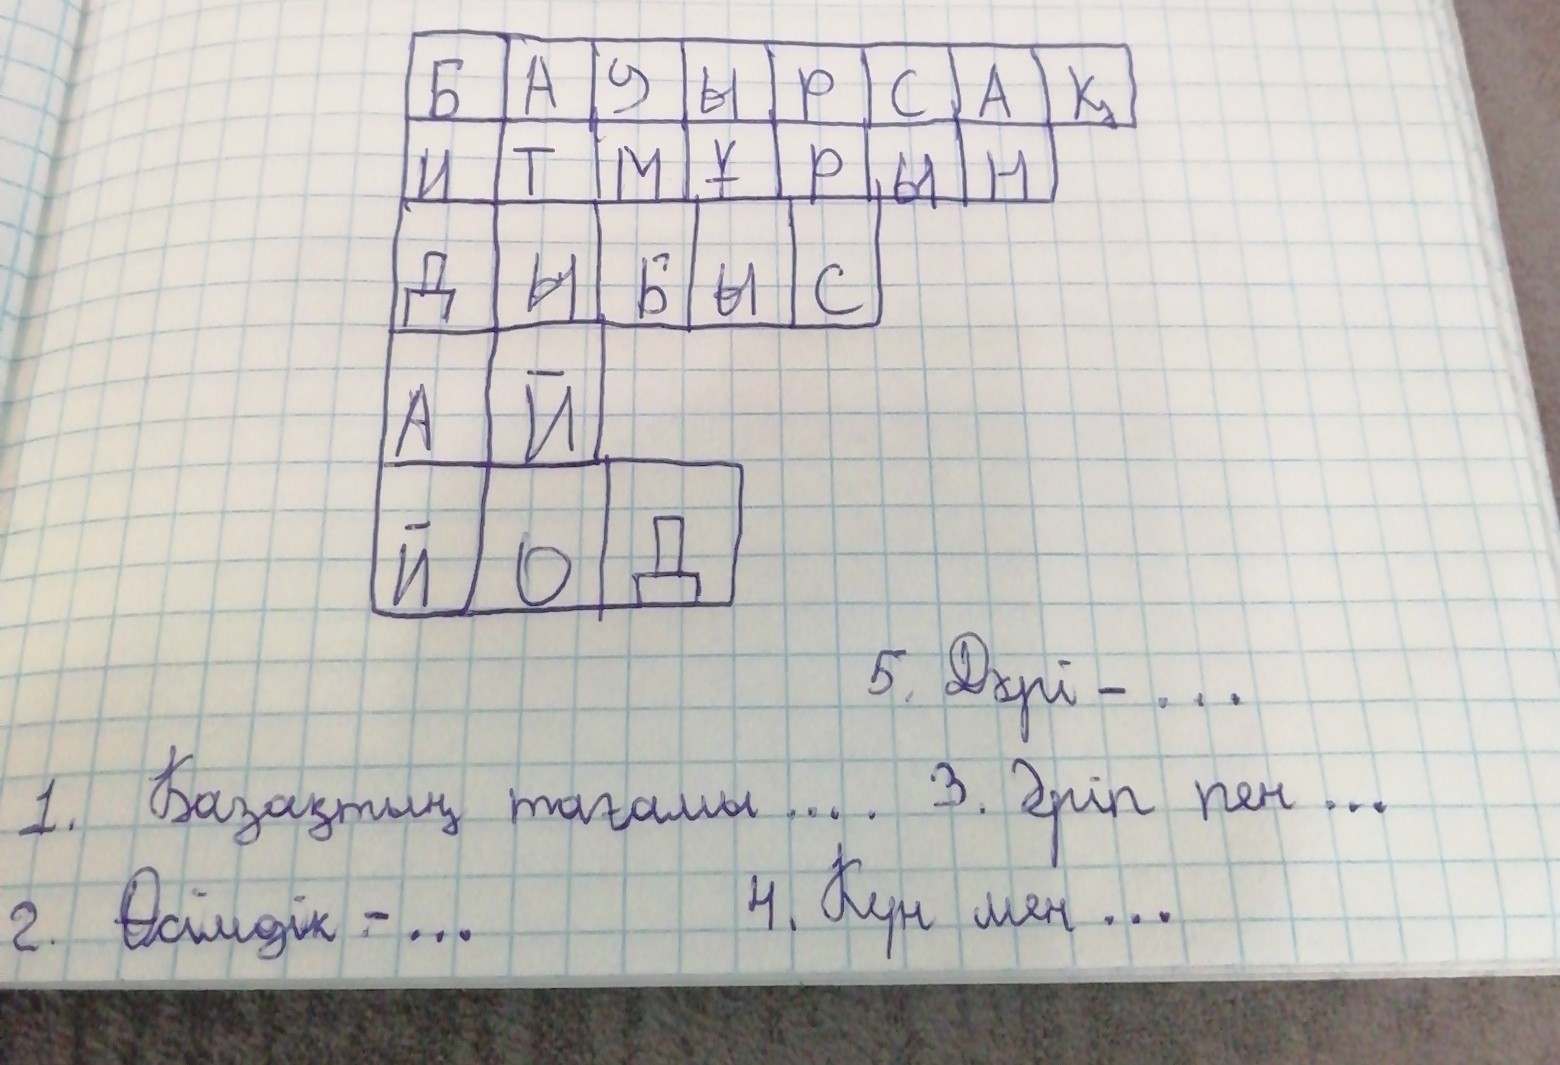 БАУЫРСАҚ
ИТМҰРЫН
ДЫБЫС
АЙ
ЙОД
5. Дәрі - ...
1. Қазақтың тағамы .... 3. Әріп пен ...
2. Өсімдік - ... 4. Күн мен ...